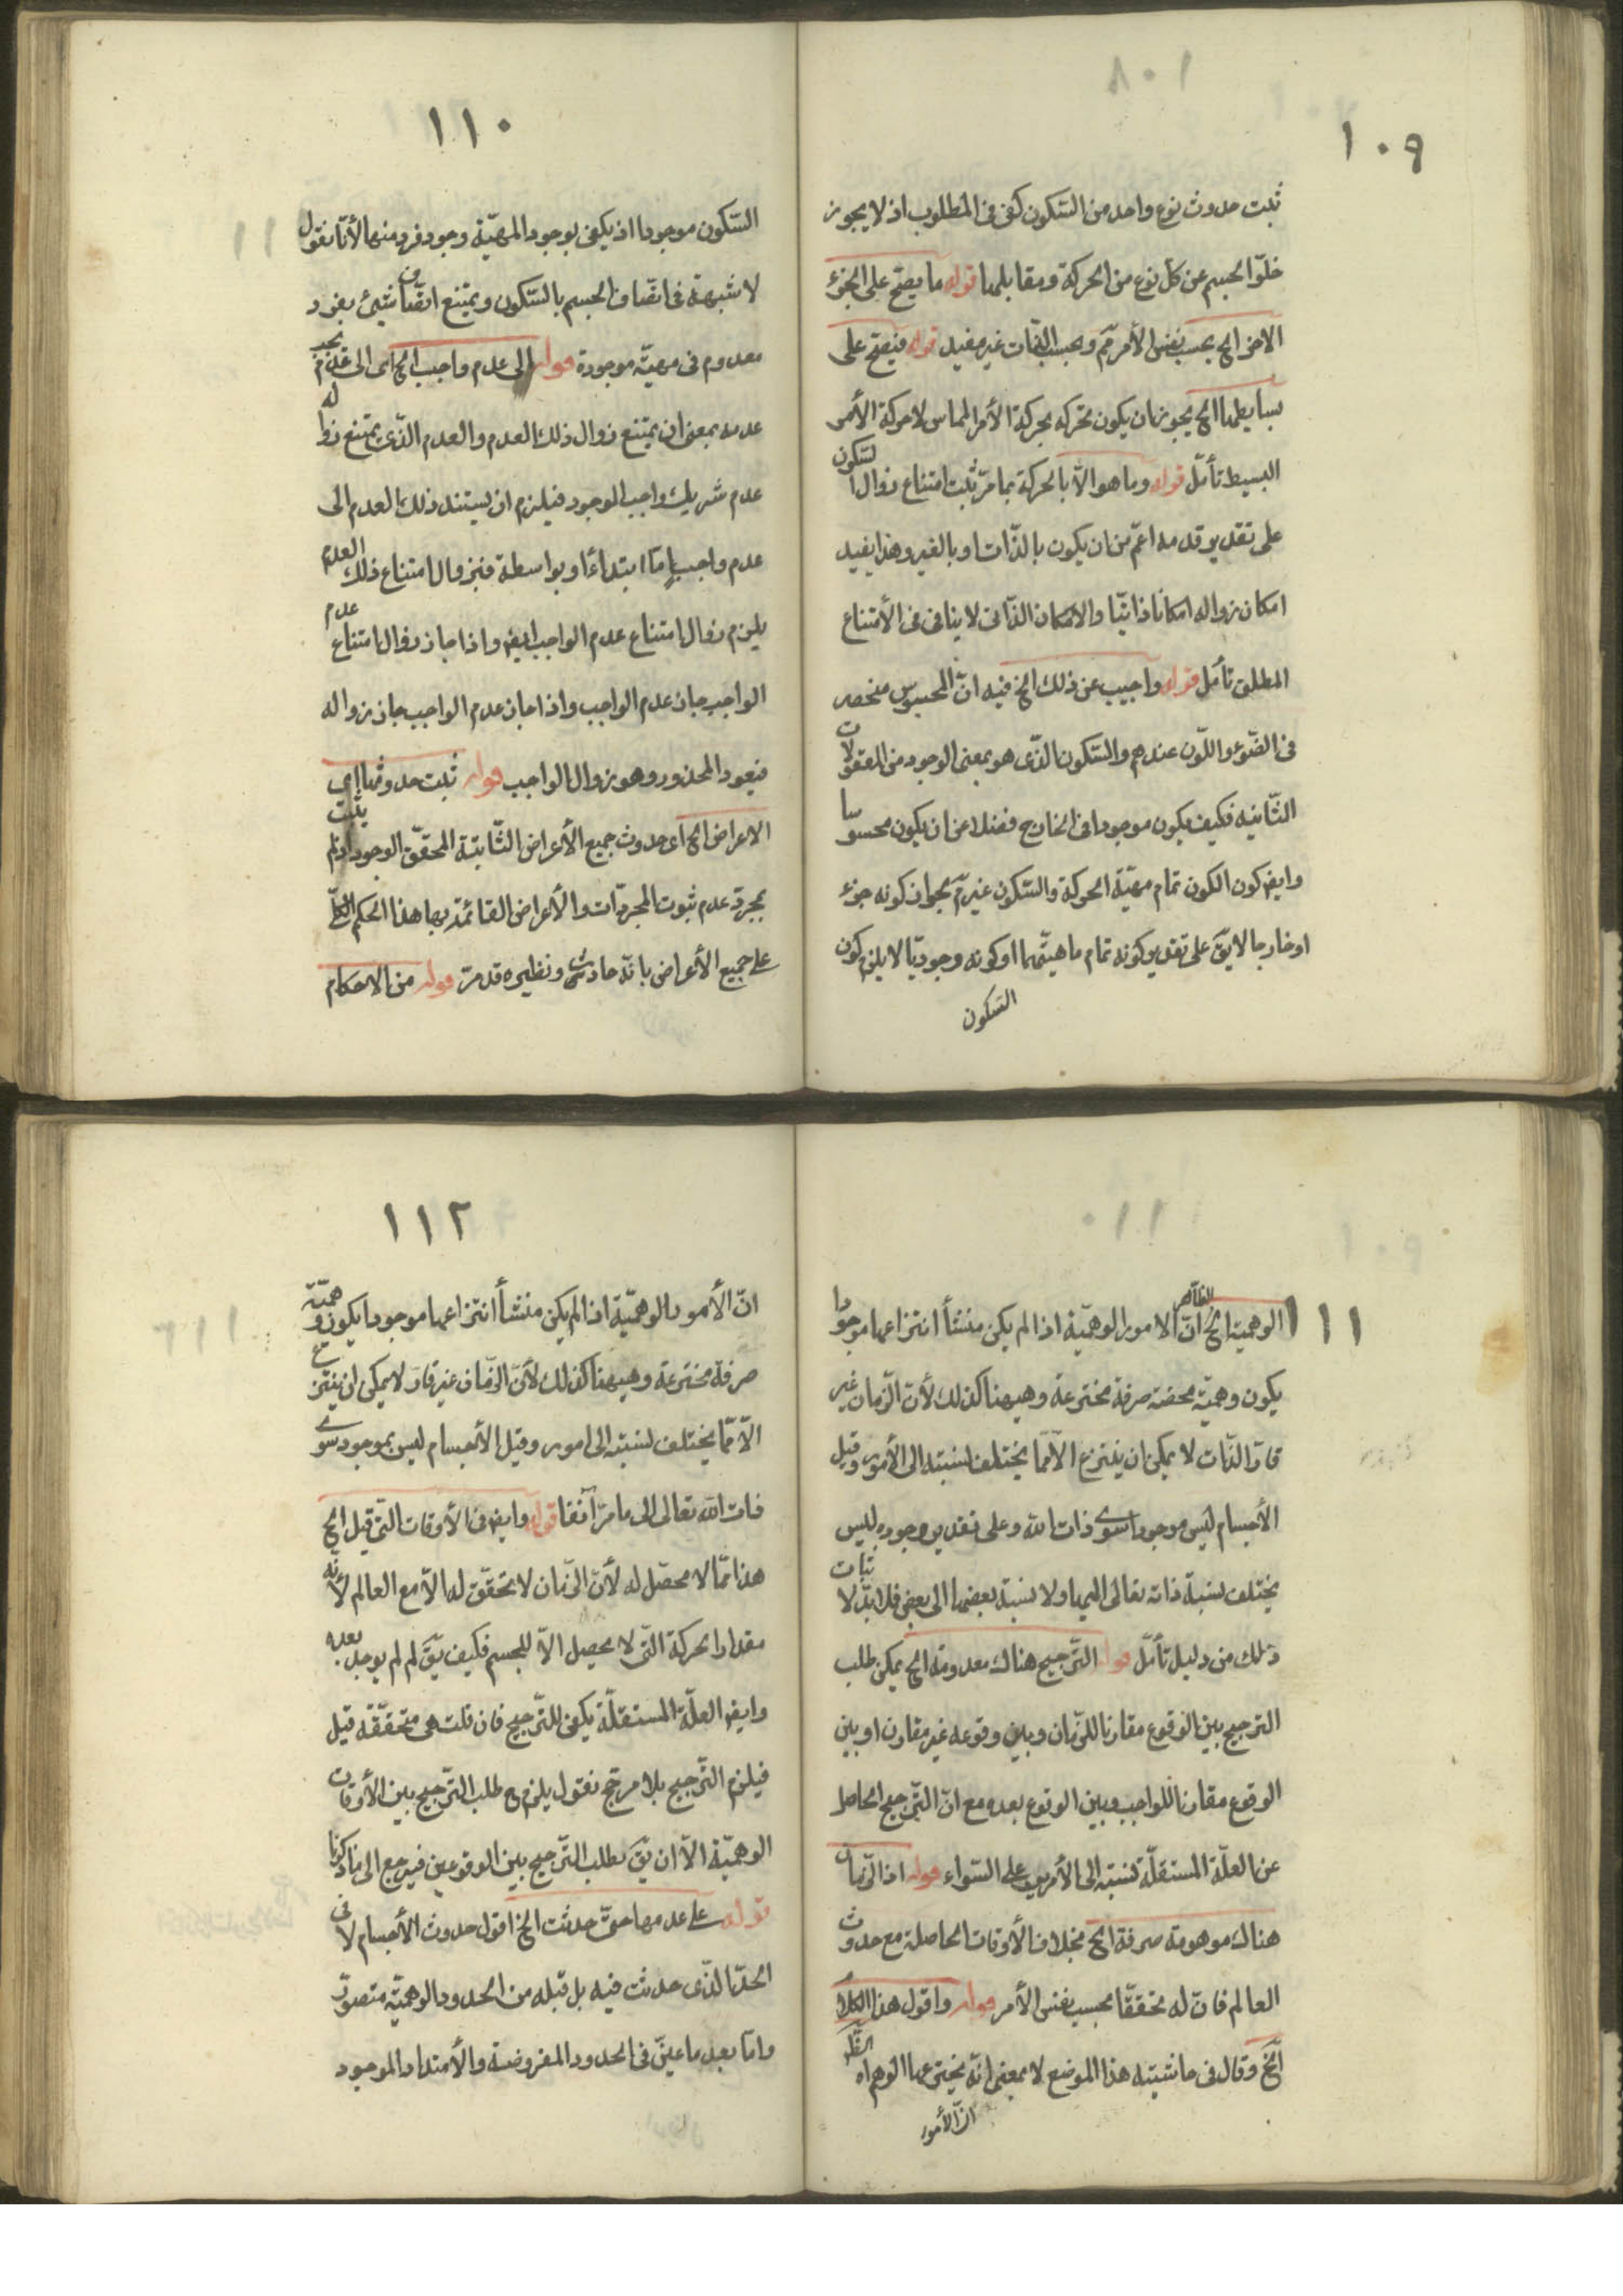 ١٠٩
ثبت حدوث نوع واحد من السّكون كفى فى المطلوب اذ لا يجوز
خلوّ الجسم عن كل نوع من الحركة ومقابلها قوله ما يصحّ على الجزء
الاخر الخ بحسب نفس الأمر مم وبحسب الذّات غير مفيد قوله فيصحّ على
بسايطها الخ يجوز ان يكون تحركه بحركة الأمر المماس لا حركة الأمر
البسيط تأمّل قوله وما هو الّا بالحركة بما مرّ ثبت امتناع زوال السّكون
على تقدير قدمه اعمّ من ان يكون بالذّات او بالغير وهذا يفيد
امكان زواله امكانا ذاتيّا والامكان الذّاتى لا ينافى فى الأمتناع
المطلق تأمّل قوله واجيب عن ذلك الخ فيه انّ المحسوس منحصر
فى الضّوء واللّون عندهم والسّكون الذّى هو بمعنى الوجود من المعقولات
الثّانيه فكيف يكون موجودا فى الخارج فضلا عن ان يكون محسوسا
وايض كون الكون تمام مهيّة الحركة والسّكون غير مم بجواز كونه جزء
او خارجا لا يقّ على تقدير كونه تمام ماهيّتهما او كونه وجوديّا لا يلزم كون
السّكون
١١٠
السّكون موجودا اذ يكفى بوجود المهيّة وجود فرد منها لأنّا نقول
لا شبهة فى اتّصاف الجسم بالسّكون ويمتنع اتّصاف شيئ بفرد
معدوم فى مهيّة موجودة قوله الى عدم واجب الخ اى الى
عدمه بمعنى ان يمتنع زوال ذلك العدم والعدم الذّى يمتنع زواله
عدم شريك واجب الوجود فيلزم ان يستند ذلك العدم الى
عدم واجب امّا ابتداءً او بواسطة فبزوال امتناع ذلك العدم
يلزم زوال امتناع عدم الواجب ايض واذا جاز زوال امتناع عدم
الواجب جاز عدم الواجب واذا جاز عدم الواجب جاز زواله
فيعود المحذور وهو زوال الواجب قوله ثبت حدوثها اى
الاعراض الخ اى حدوث جميع الأعراض الثّابتة المحقّق الوجود اذ لم يثبت
بمجرّد عدم ثبوت المجرّدات والأعراض القائمة بها هذا الحكم الكلّى
على جميع الأعراض بانّه حادث ونظيره قد مرّ قوله من الاحكام
١١١
الوهمية الخ الظّاهر انّ الامور الوهميّة اذا لم يكن منشأ انتزاعها موجودا
يكون وهميّة محضة صرفة مخترعة وهيهنا كذلك لأنّ الزّمان غير
قارّ الذّات لا يمكن ان ينتزع الّا ممّا يختلف نسبته الى الأمور وقبل
الأجسام ليس موجودا سوى ذات الله وعلى تقدير وجوده ليس
يختلف نسبة ذاته تعالى اليها ولا نسبة بعضها الى بعض فلا بدّ لاثبات
ذلك من دليل تأمّل قوله التّرجيح هناك معدومة الخ يمكن طلب
الترجيح بين الوقوع مقارنا للزّمان وبين وقوعه غير مقارن او بين
الوقوع مقارنا للواجب وبين الوقوع بعده مع انّ التّرجيح الحاصل
عن العلّة المستقلّة نسبته الى الأمرين على السّواء قوله اذ الزّمان
هناك موهومة صرفة الخ بخلاف الأوقات الحاصلة مع حدوث
العالم فانّ له تحقّقا بحسب نفس الأمر قوله واقول هذا الكلام
الخ وقال فى حاشيته هذا الموضع لا بمعنى انّه يخترعها الوهم اه
انّ الأمور
١١٢
انّ الأمور الوهميّة اذا لم يكن منشأ انتزاعها موجودا يكون وهميّة
صرفة مخترعة وهيهنا كذلك لأنّ الزّمان غير قارّ لا يمكن ان ينتزع
الّا ممّا يختلف نسبته الى امور وقبل الأجسام ليس بموجود سوى
ذات الله تعالى الى ما مرّ آنفا قوله وايض فى الأوقات التّى قبل الخ
هذا ممّا لا محصّل له لأنّ الزّمان لا تحقّق له الّا مع العالم لأنّه
مقدار الحركة التّى لا يحصل الّا للجسم فكيف يقّ لم لم يوجد بعده
وايض العلّة المستقلّة يكفى للتّرجيح فان قلت هى متحقّقة قبل
فيلزم التّرجيح بلا مرجّح نقول يلزم ح طلب التّرجيح بين الأوقات
الوهميّة الّا ان يقّ يطلب التّرجيح بين الوقوعين فيرجع الى ما ذكرنا
قوله على عدمها حتّى حدثت الخ اقول حدوث الأجسام لا فى
الحدّ الذّى حدثت فيه بل قبله من الحدود الوهميّة متصوّر
وامّا بعد ما عيّن فى الحدود المفروضة والأمتداد الموجود